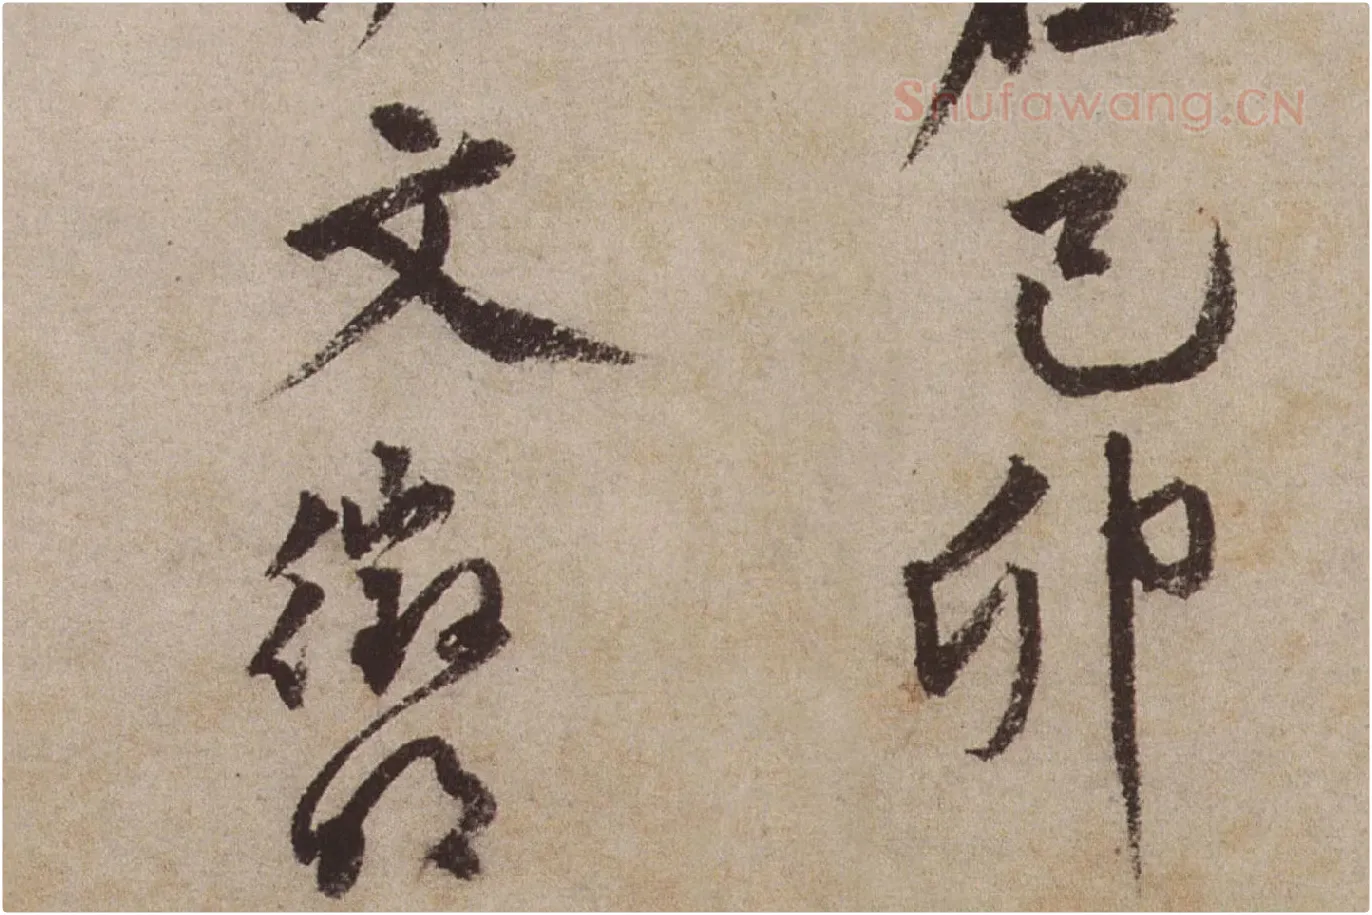 己卯
文徵明
Shufawang.CN